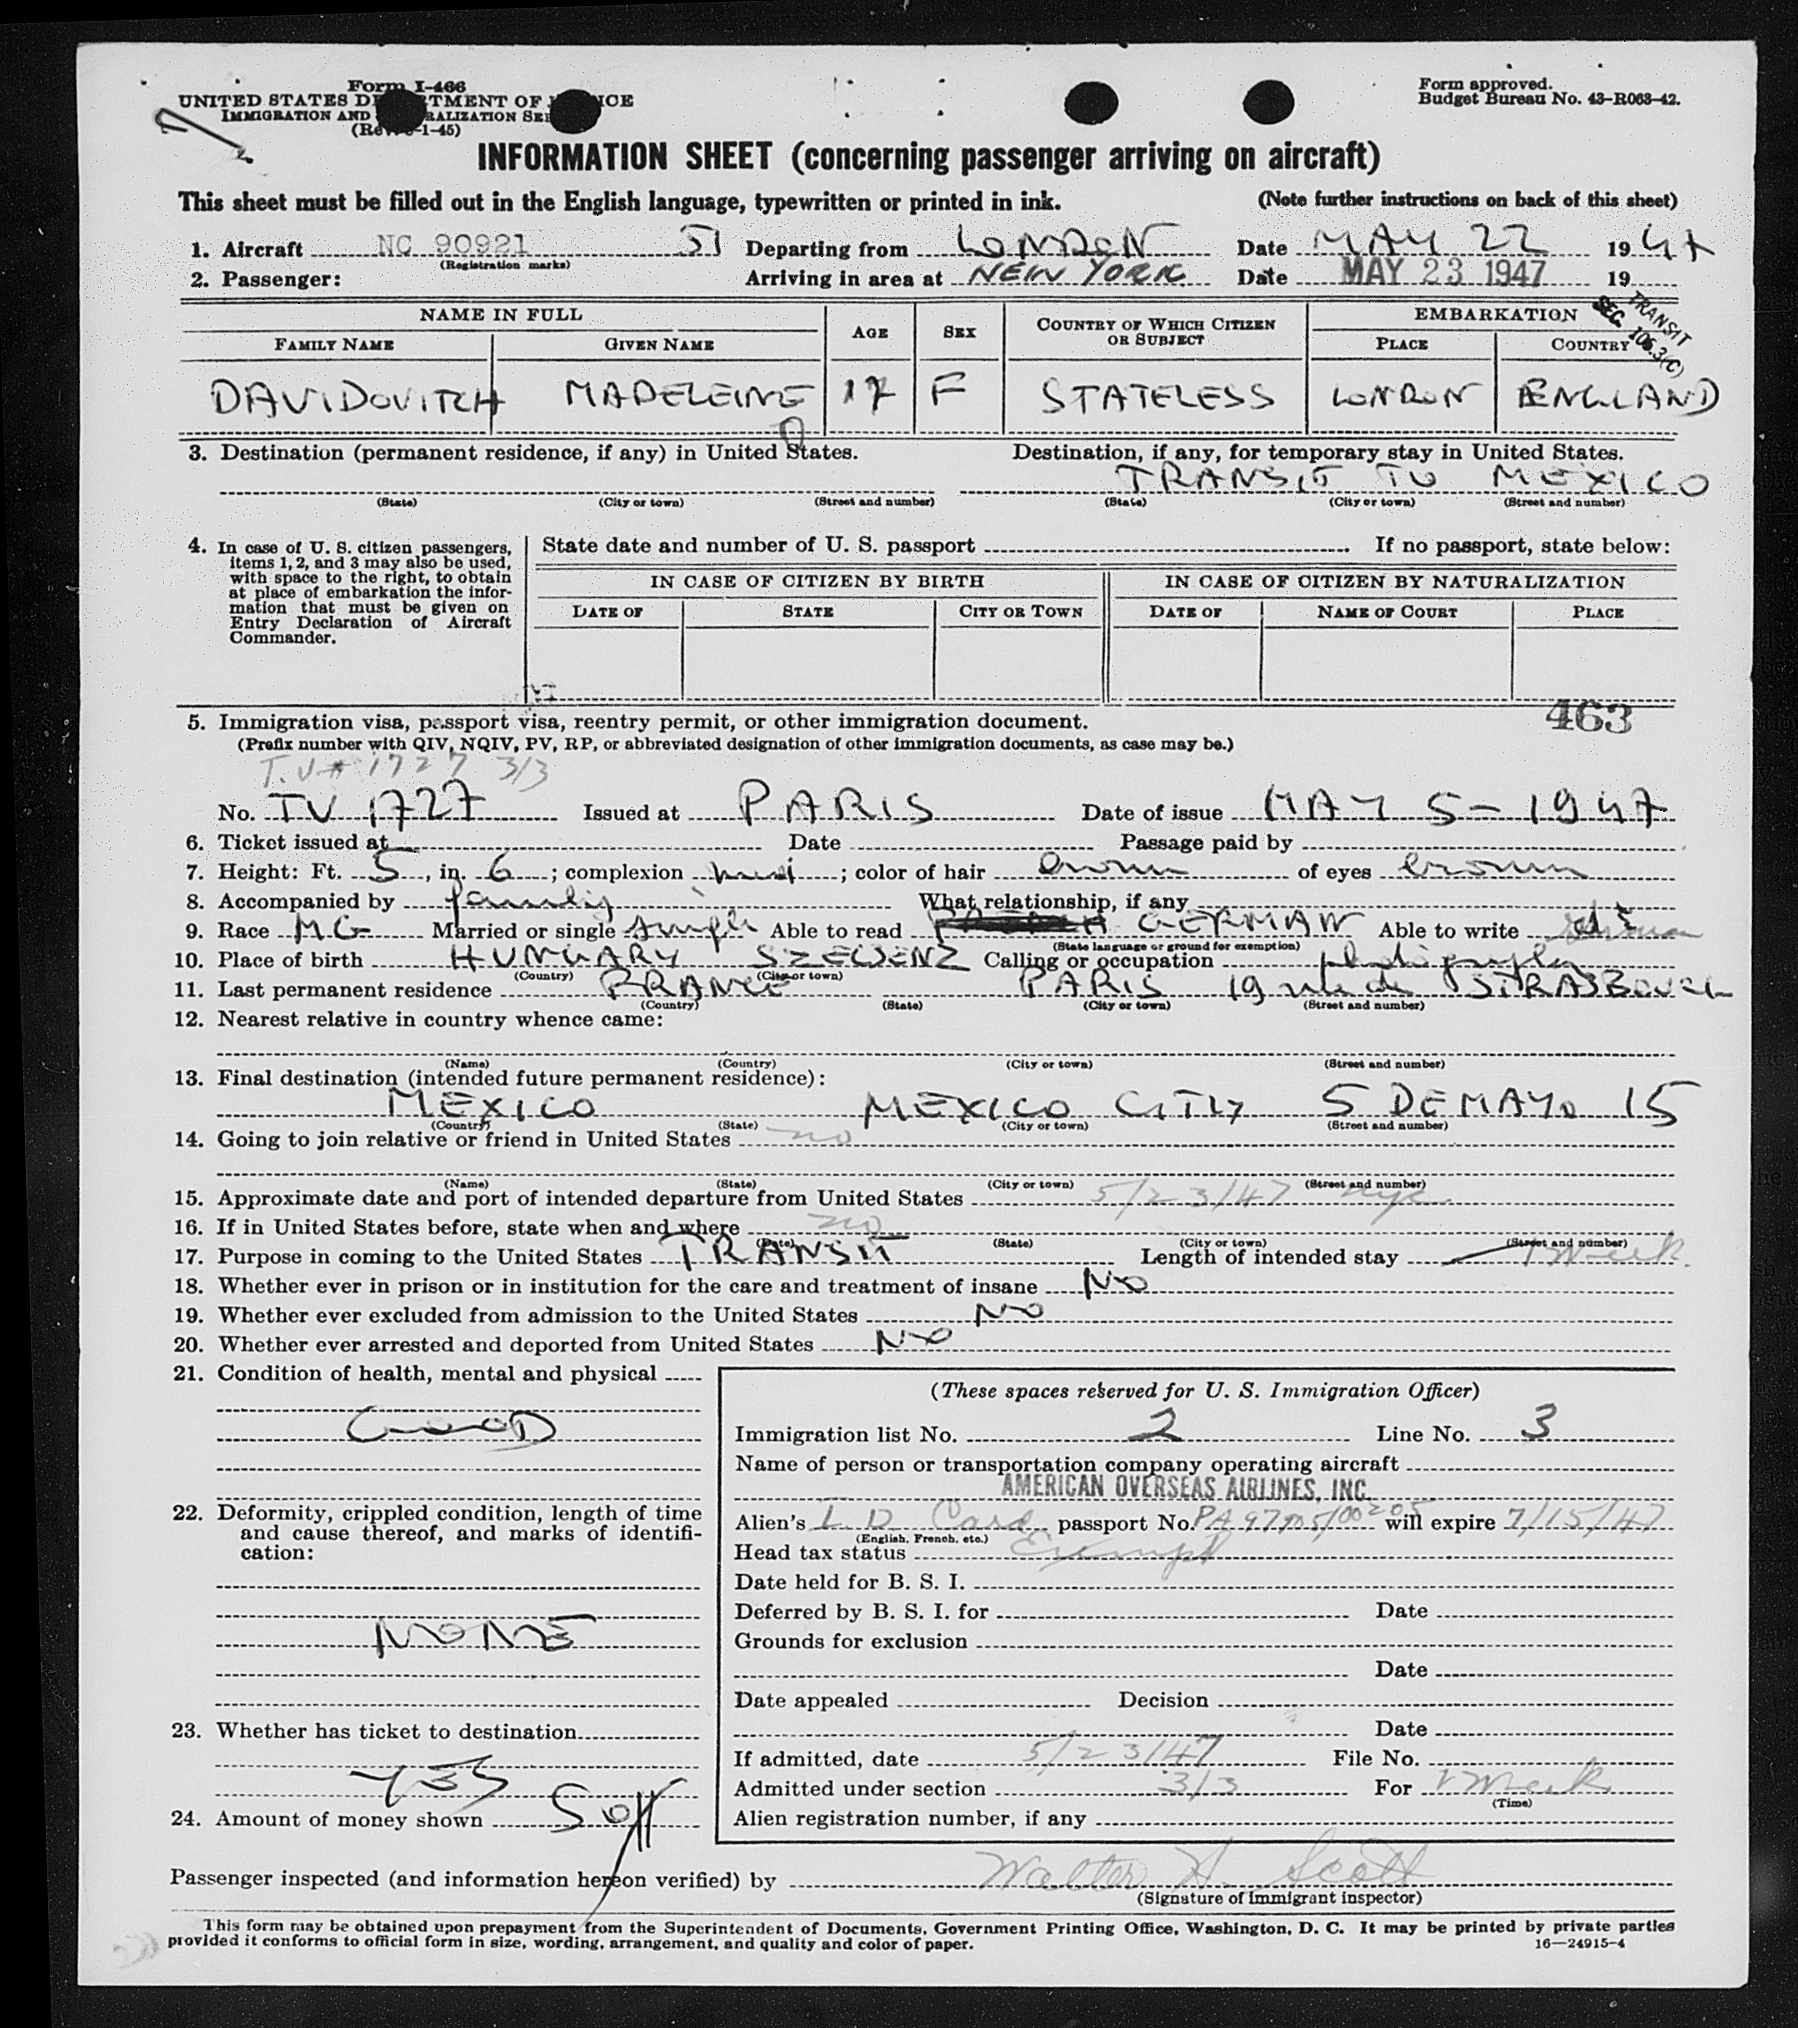 Form I-466
UNITED STATES DEPARTMENT OF JUSTICE
IMMIGRATION AND NATURALIZATION SERVICE
(Rev. -1-45)
Form approved.
Budget Bureau No. 43-R063-42.
INFORMATION SHEET (concerning passenger arriving on aircraft)
This sheet must be filled out in the English language, typewritten or printed in ink. (Note further instructions on back of this sheet)
1. Aircraft NC 90921 51 Departing from LONDON Date MAY 22 1947
(Registration marks)
2. Passenger: Arriving in area at NEW YORK Date MAY 23 1947 19
TRANSIT
SEC. 106.3(C)
NAME IN FULL AGE SEX COUNTRY OF WHICH CITIZEN OR SUBJECT EMBARKATION
FAMILY NAME GIVEN NAME PLACE COUNTRY
DAVIDOVITCH MADELEINE 17 F STATELESS LONDON ENGLAND
3. Destination (permanent residence, if any) in United States. Destination, if any, for temporary stay in United States.
TRANSIT TO MEXICO
(State) (City or town) (Street and number) (State) (City or town) (Street and number)
4. In case of U. S. citizen passengers, items 1, 2, and 3 may also be used, with space to the right, to obtain at place of embarkation the information that must be given on Entry Declaration of Aircraft Commander.
State date and number of U. S. passport . If no passport, state below:
IN CASE OF CITIZEN BY BIRTH IN CASE OF CITIZEN BY NATURALIZATION
DATE OF STATE CITY OR TOWN DATE OF NAME OF COURT PLACE
463
5. Immigration visa, passport visa, reentry permit, or other immigration document.
(Prefix number with QIV, NQIV, PV, RP, or abbreviated designation of other immigration documents, as case may be.)
T.V # 1727 3/3
No. TV 1727 Issued at PARIS Date of issue MAY 5-1947
6. Ticket issued at Date Passage paid by
7. Height: Ft. 5, in. 6; complexion ; color of hair brown of eyes brown
8. Accompanied by family What relationship, if any
9. Race MG Married or single single Able to read GERMAN Able to write German
(State language or ground for exemption)
10. Place of birth HUNGARY Calling or occupation
(Country) (City or town)
11. Last permanent residence FRANCE PARIS 19
(Country) (State) (City or town) (Street and number)
12. Nearest relative in country whence came:
(Name) (Country) (City or town) (Street and number)
13. Final destination (intended future permanent residence):
MEXICO MEXICO CITY 5 DE MAYO 15
(Country) (State) (City or town) (Street and number)
14. Going to join relative or friend in United States no
(Name) (State) (City or town) (Street and number)
15. Approximate date and port of intended departure from United States 5/23/47 nyc
16. If in United States before, state when and where no
(Date) (State) (City or town) (Street and number)
17. Purpose in coming to the United States TRANSIT Length of intended stay 1 Week
18. Whether ever in prison or in institution for the care and treatment of insane NO
19. Whether ever excluded from admission to the United States NO
20. Whether ever arrested and deported from United States NO
21. Condition of health, mental and physical
GOOD
22. Deformity, crippled condition, length of time and cause thereof, and marks of identification:
NONE
23. Whether has ticket to destination
YES
24. Amount of money shown
(These spaces reserved for U. S. Immigration Officer)
Immigration list No. 2 Line No. 3
Name of person or transportation company operating aircraft
AMERICAN OVERSEAS AIRLINES, INC.
Alien's I. D. Card passport No. will expire 7/15/47
(English, French, etc.)
Head tax status Exempt
Date held for B. S. I.
Deferred by B. S. I. for Date
Grounds for exclusion
Date
Date appealed Decision
Date
If admitted, date 5/23/47 File No.
Admitted under section 3/3 For 1 Week
(Time)
Alien registration number, if any
Passenger inspected (and information hereon verified) by Walter H. Scott
(Signature of Immigrant inspector)
This form may be obtained upon prepayment from the Superintendent of Documents, Government Printing Office, Washington, D. C. It may be printed by private parties
provided it conforms to official form in size, wording, arrangement, and quality and color of paper. 16—24915-4